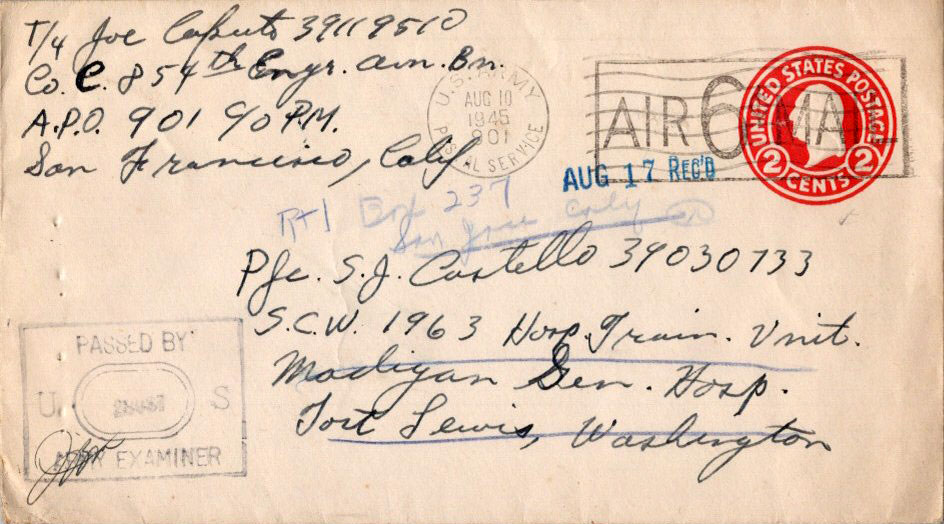 T/4 Joe Caputo 39119510
Co. C. 854th Engr. Avn. Bn.
A.P.O. 901 c/o P.M.
San Francisco, Calif
U.S. ARMY
AUG 10
1945
901
POSTAL SERVICE
AIR 6¢ MAIL
UNITED STATES POSTAGE
2 CENTS 2
AUG 17 REC'D
Rt 1 Box 237
San Jose Calif
Pfc. S.J. Costello 39030733
S.C.W. 1963 Hosp. Train. Unit.
Madigan Gen. Hosp.
Fort Lewis, Washington
PASSED BY
U. S
ARMY EXAMINER